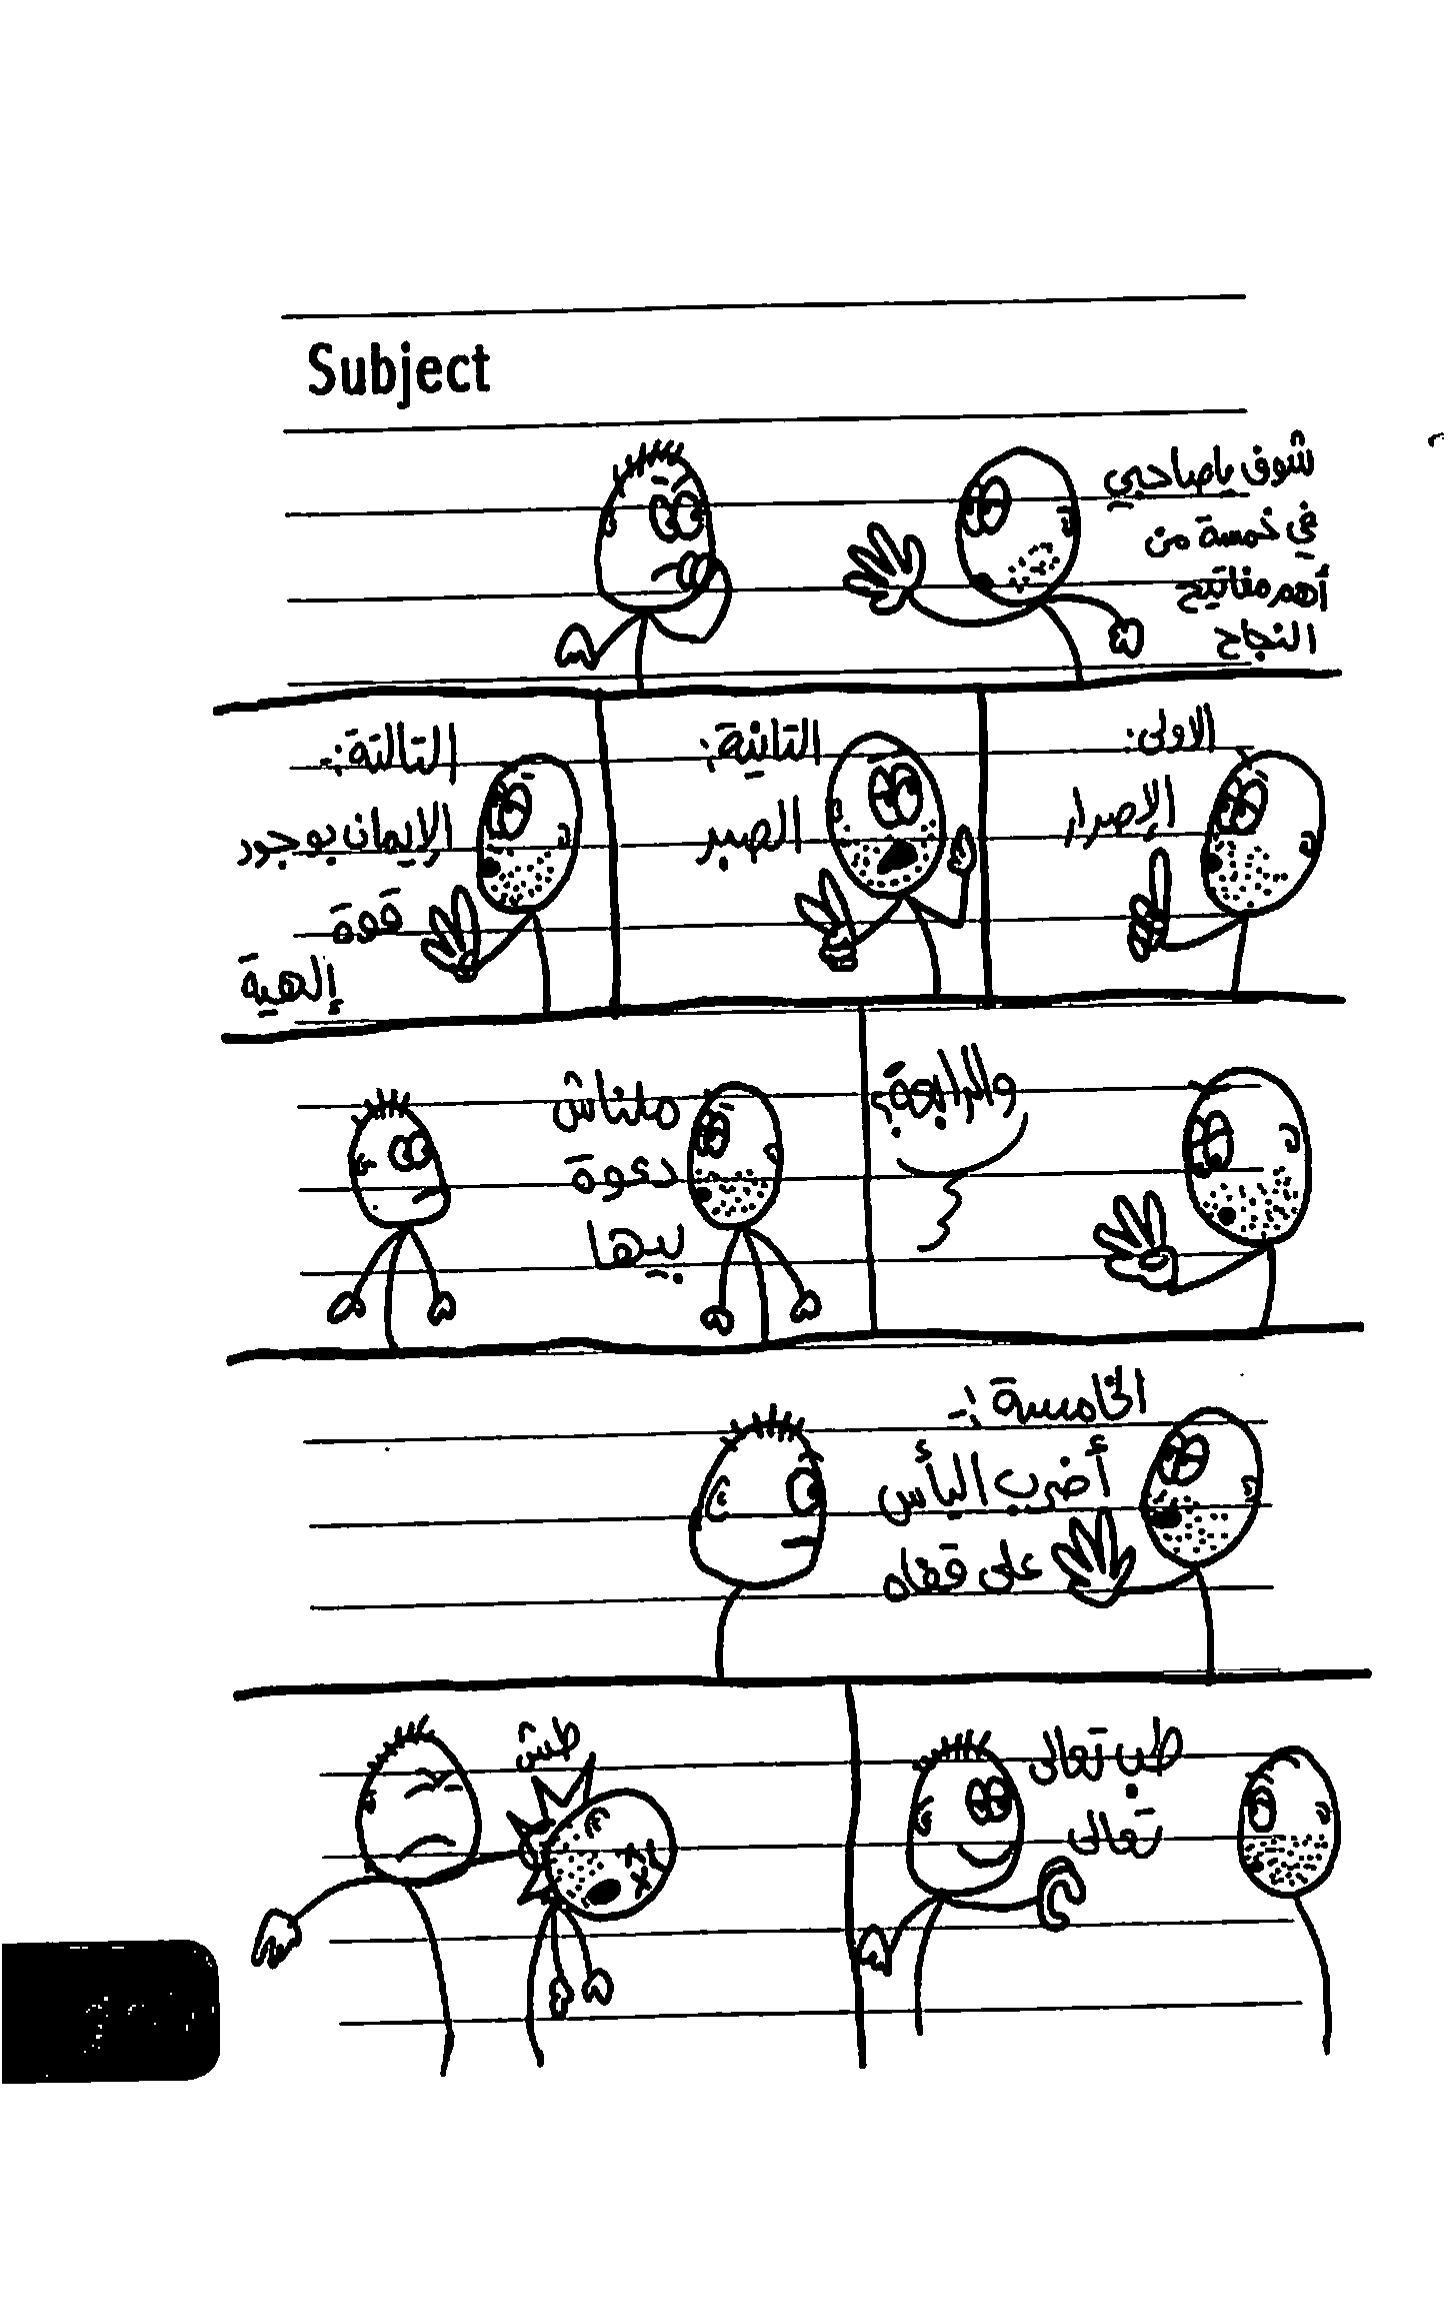 Subject
شوف ياصاحبي
في خمسة من
أهم مفاتيح
النجاح
الاولى:
الإصرار
التانية:
الصبر
التالتة:-
الإيمان بوجود
قوة
إلهية
والرابعة؟
ملناش
دعوة
بيها
الخامسة:-
أضرب اليأس
على قفاه
طب تعالى
تعالى
طش